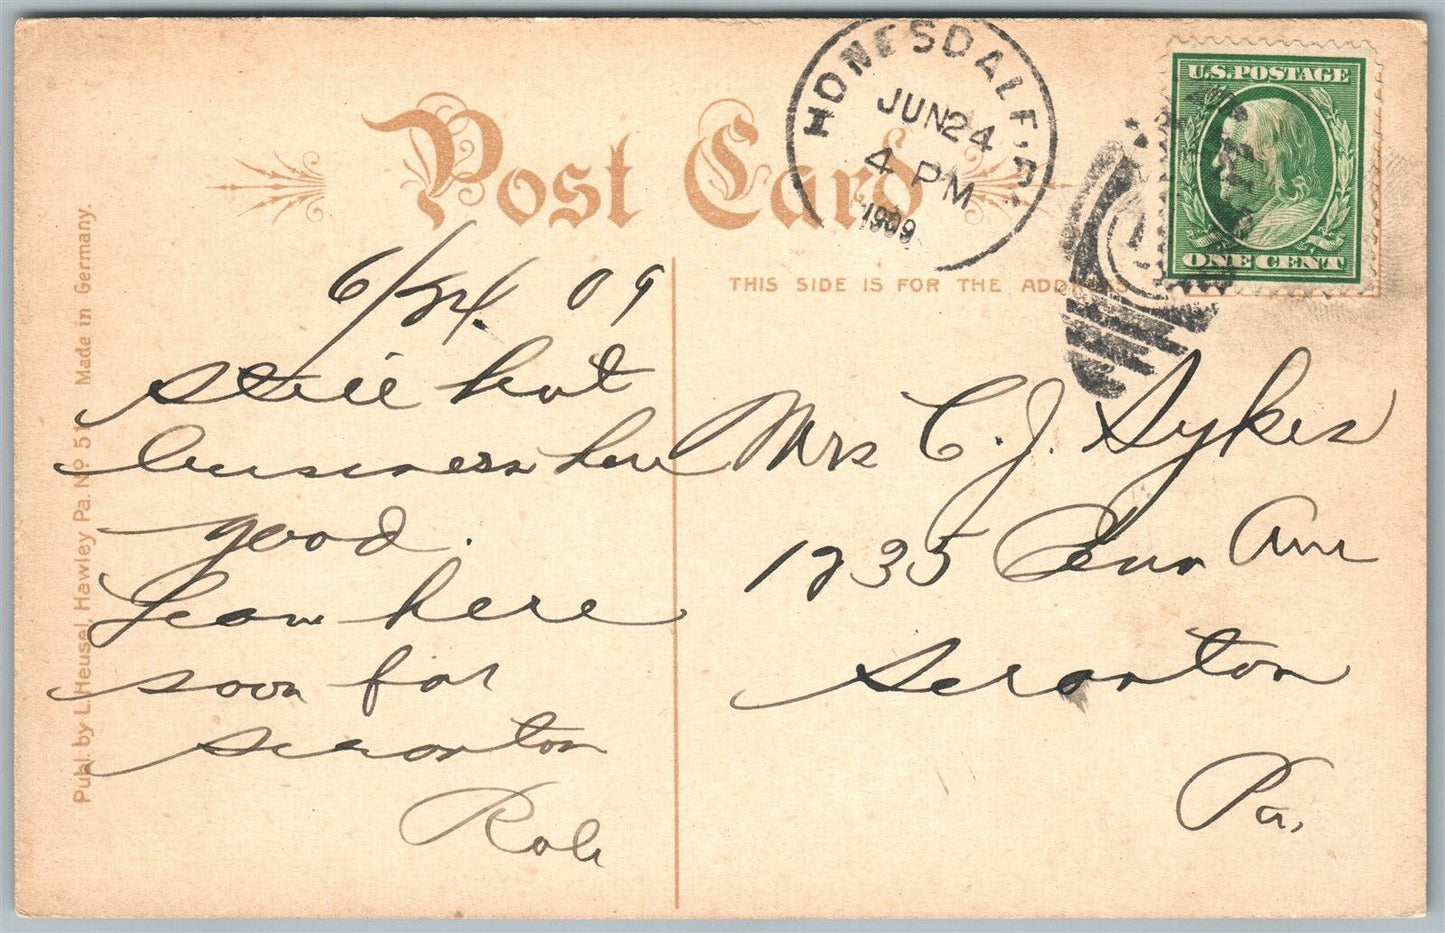 Post Card
HONESDALE, PA.
JUN 24
4 PM
1909
U.S. POSTAGE
ONE CENT
THIS SIDE IS FOR THE ADDRESS
6/24. 09
Still hot
business here
good.
Leave here
soon for
Scranton
Rob
Mrs C. J. Sykes
1235 Penn Ave
Scranton
Pa.
Publ. by L. Heusel Hawley Pa. No 51 Made in Germany.